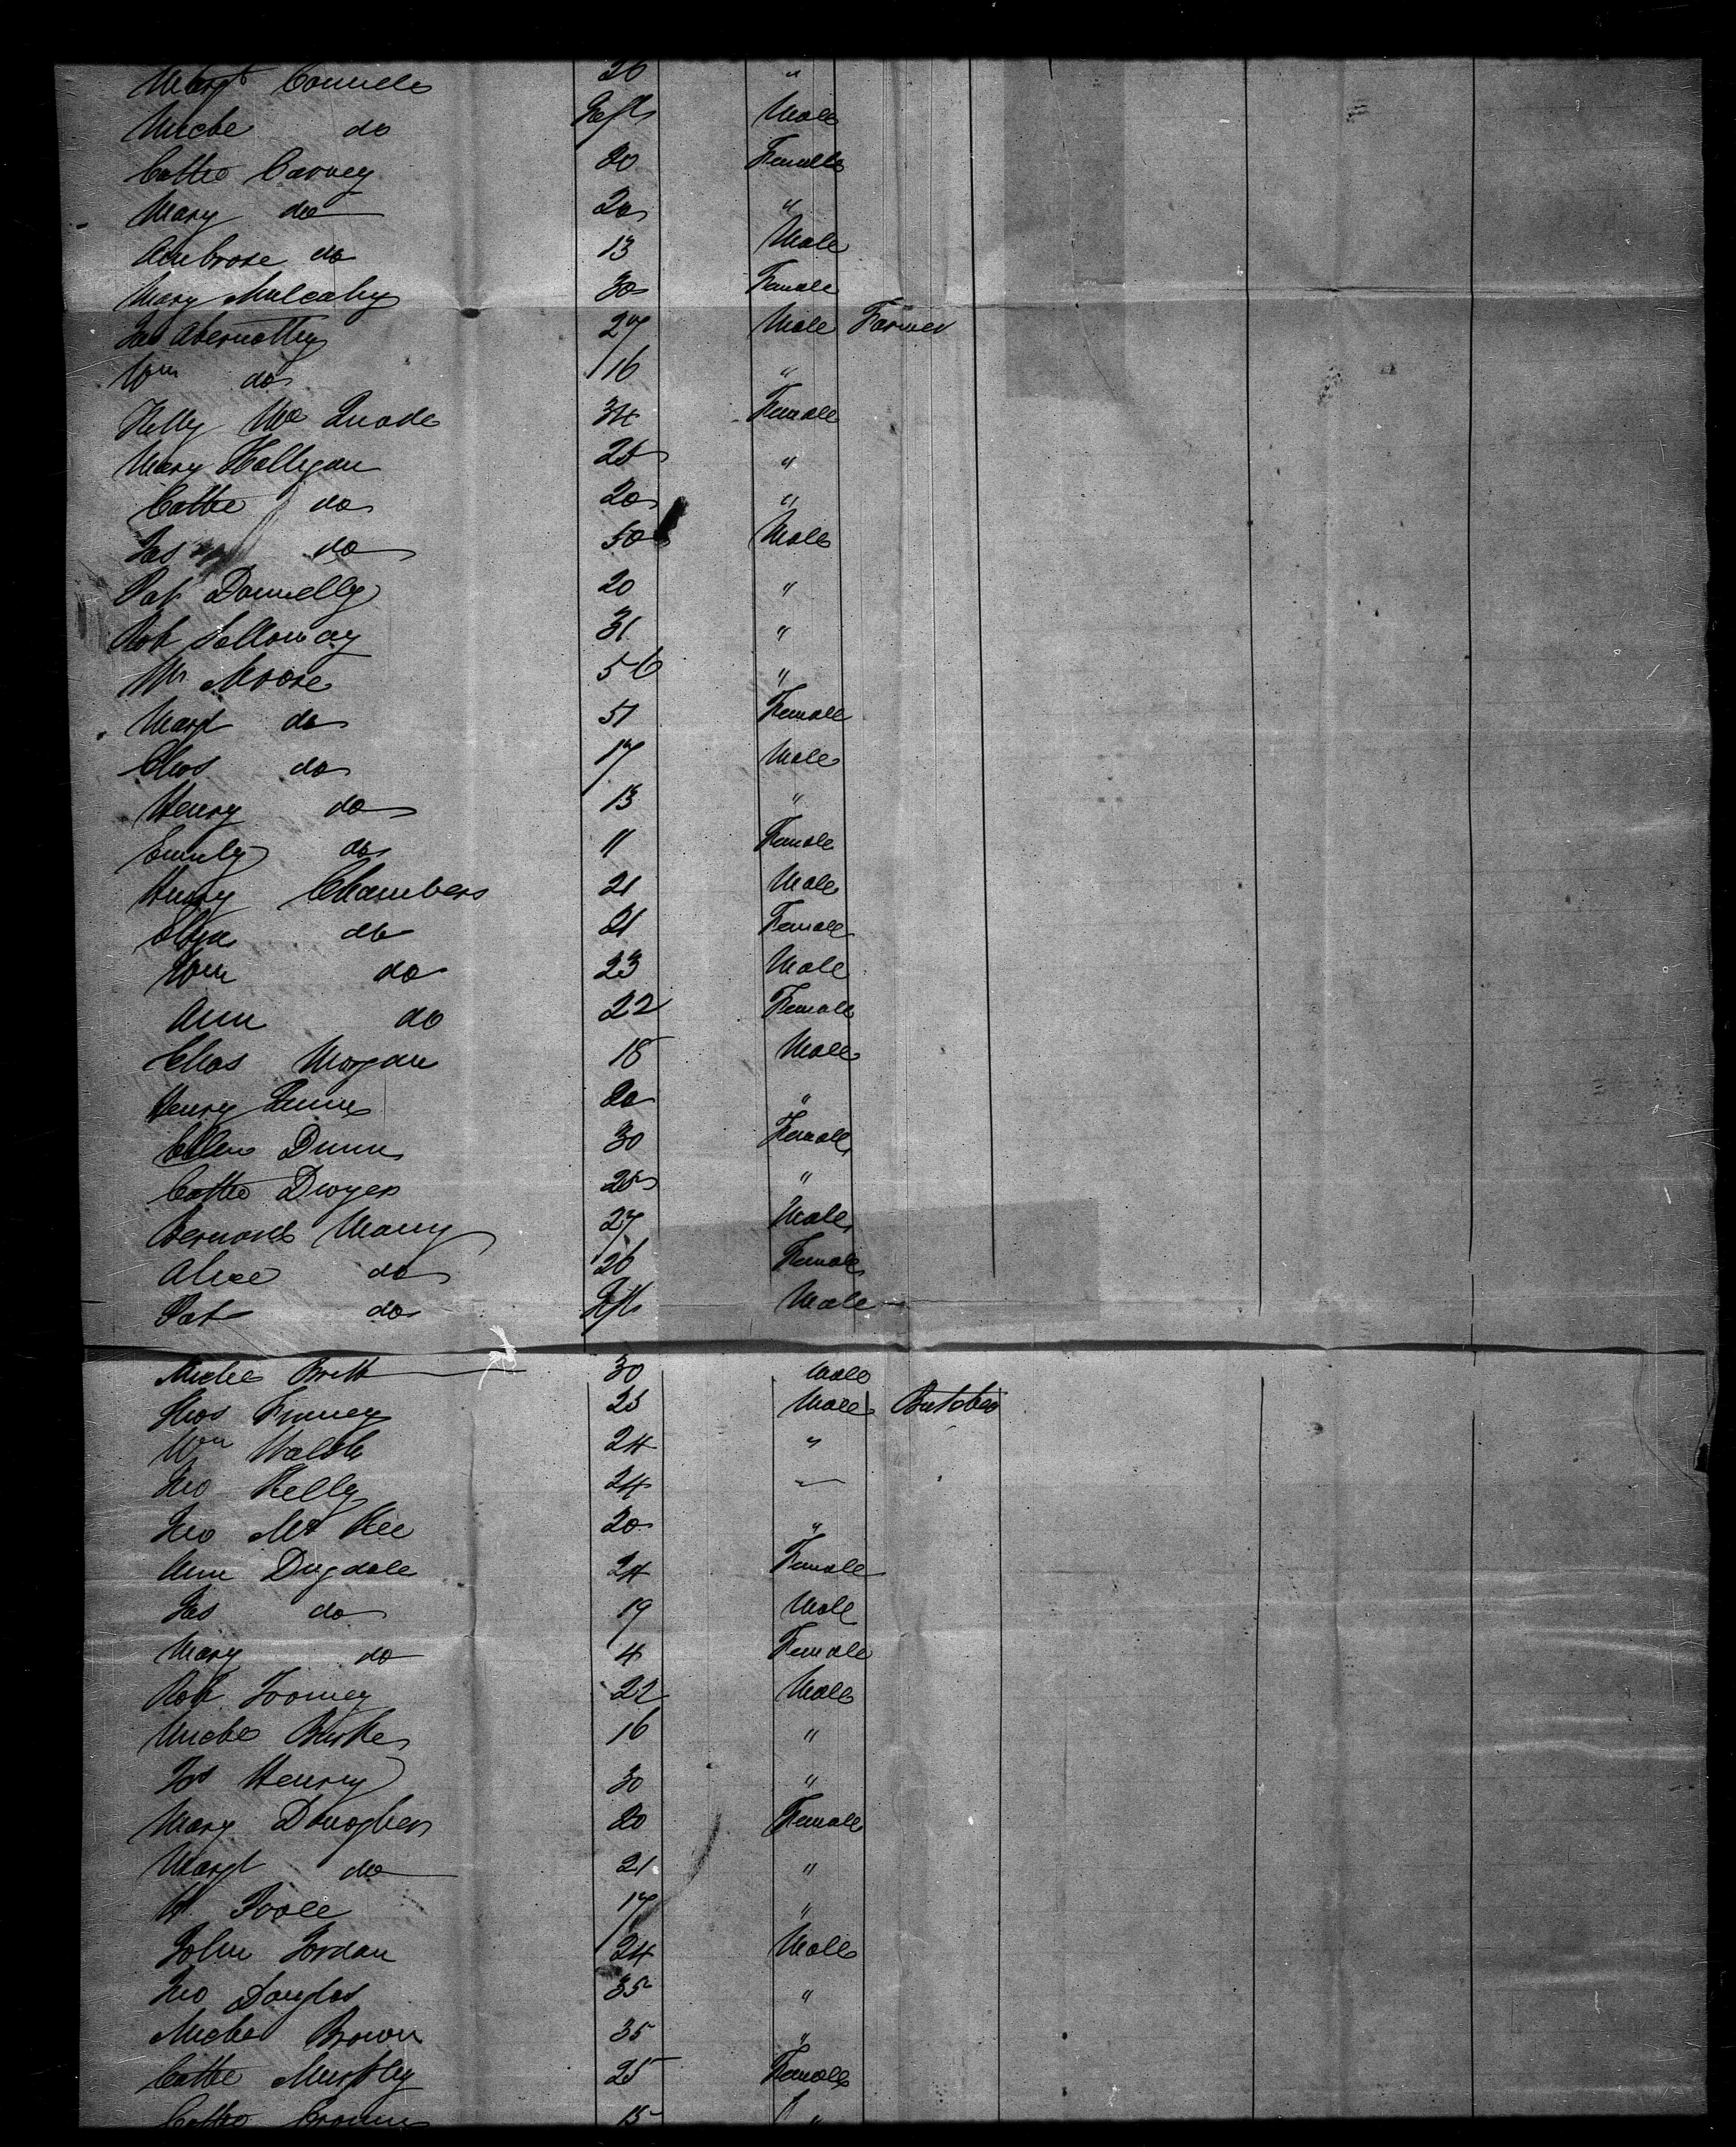 Margt Connele 26 "
Miche do Inft Male
Cathe Carney 20 Female
Mary do 20 "
Ambrose do 13 Male
Mary Mulcahy 30 Female
Jas Abernathy 27 Male Farmer
Wm do 16 "
Mc Quade 34 Female
Mary Halligan 25 "
Cathe do 20 "
Jas do 50 Male
Pat Donnelly 20 "
Robt Solloway 31 "
Wm Moore 56 "
Margt do 51 Female
Chas do 17 Male
Henry do 13 "
Emily do 11 Female
Henry Chambers 21 Male
Eliza do 21 Female
Wm do 23 Male
Ann do 22 Female
Chas Morgan 18 Male
Henry 20 "
Ellen Dunn 30 Female
Cathe Dwyer 25 "
Bernard Many 27 Male
Alice do 26 Female
Pat do Inft Male
Miche Britt 30 Male
Thos Finney 25 Male Butcher
Wm Walsh 24 "
Jno Kelly 24 "
Jno Mc Kee 20 "
Ann Dugdale 24 Female
Jas do 19 Male
Mary do 4 Female
Robt Toomey 22 Male
Miche Burke 16 "
Jos Henry 30 "
Mary Donogher 20 Female
Margt do 21 "
Poole 17 "
John Jordan 24 Male
Jno Douglas 35 "
Miche Brown 35 "
Cathe Murphy 25 Female
Cathe 15 "